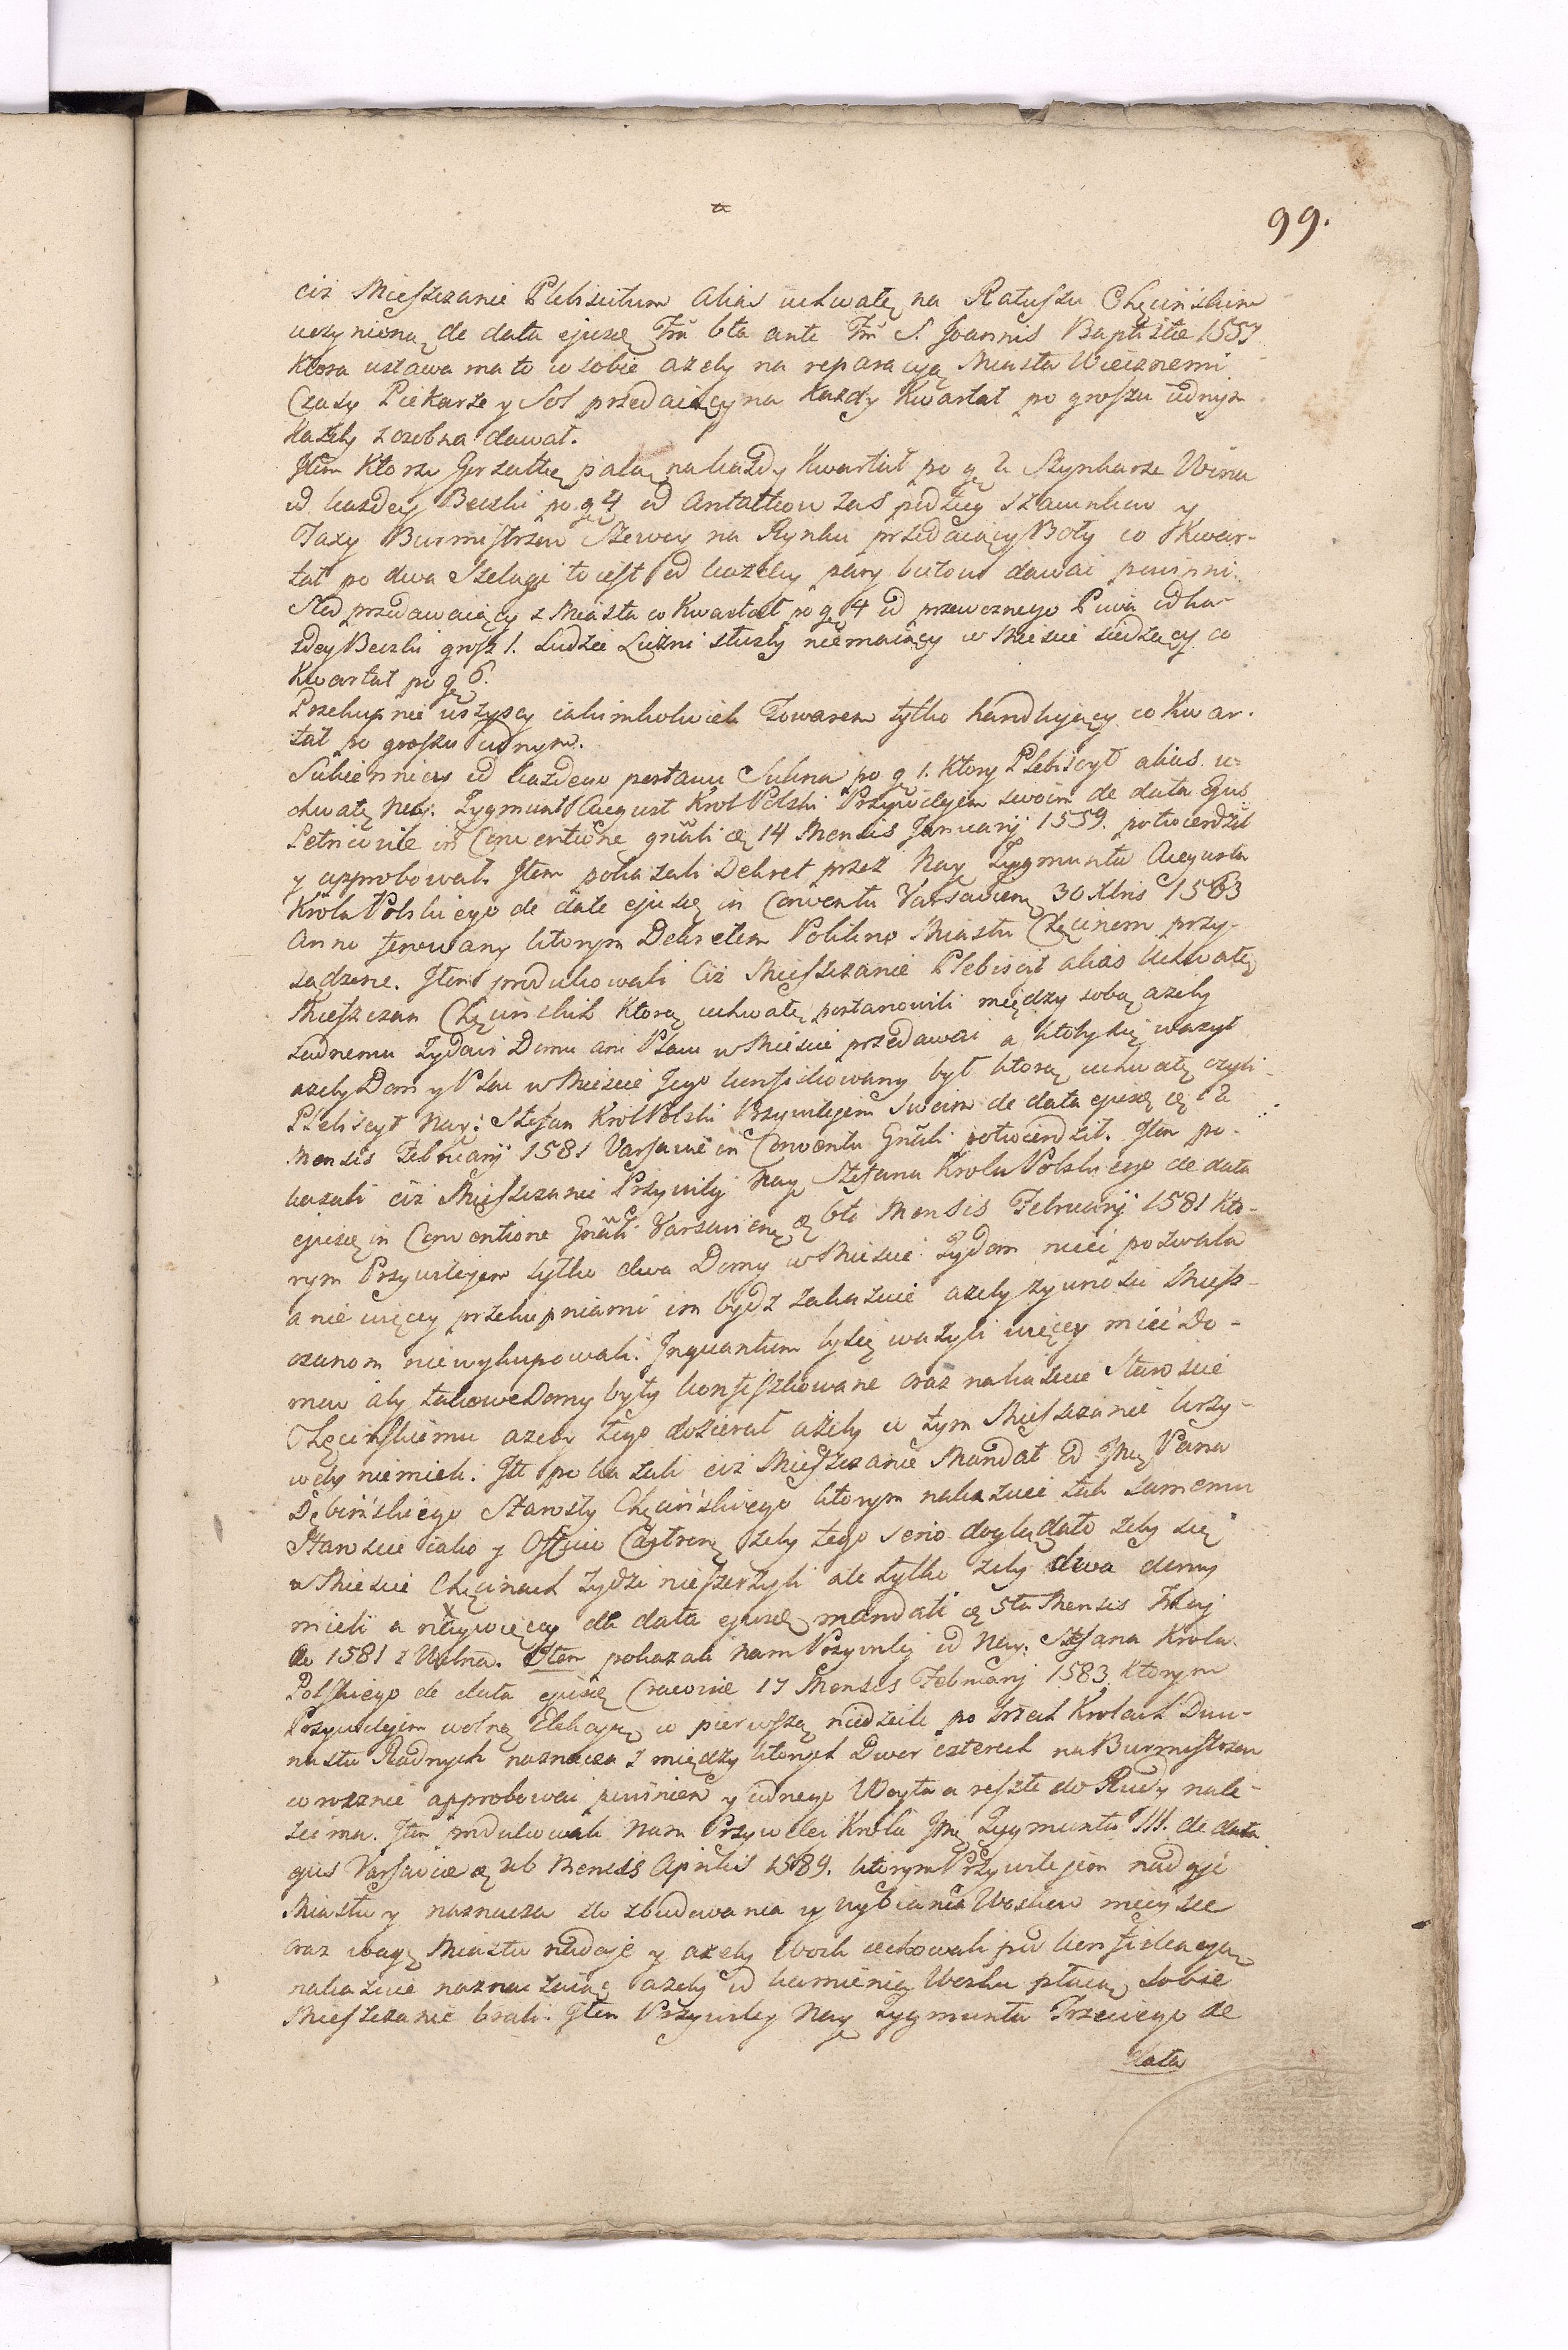 99.
ciż Mieszczanie Plebiscitum alias uchwałę na Ratuszu Chęcińskim
uczynioną de data ejusdę Fm̃ 6ta ante Fm̃ S. Joannis Baptistæ 1557
Ktora ustawa ma to w sobie azeby na reparacyą Miasta Wiecznemi
Czasy Piekarze y Sol przedaiący na kazdy Kwartał po groszu iednym
Kazdy z osobna dawał.
Item Ktorzy Gorzałkę palą na każdy Kwartał po gę 2 Szynkarze Wina
od każdey Beczki po gę 4 od Antałkow zas podług szacunku y
Taxy Burmistrzow Szewcy na Rynku przedaiący Boty co Kwar-
tał po dwa Szelągi to iest od każdey pary butow dawać powinni.
Slod przedawaiący z Miasta co Kwartał po gę 4 od przewoznego Piwa od ka-
żdey Beczki grosz 1. Ludzie Luzni służby niemaiący w Miescie siedzący co
Kwartał po gę 6.
Przekupnie wszyscy iakimkolwiek Towarem tylko handlujący co Kwar-
tał po groszu iednym.
Sukiennicy od każdego postawu Sukna po gę 1. Ktory Plebiscyt alias u-
chwałę Nay: Zygmunt August Krol Polski Przywilejem swoim de data Ejus
Petricoviæ in Conventione gnãli cę 14 Mensis Januarij 1559. potwierdził
y approbował. Item pokazali Dekret przez Nay Zygmunta Augusta
Krola Polskiego de data ejusdę in Conventu Varsavienę 30 Xbris 1563
Anno ferowany ktorym Dekretem Polikno Miastu Chęcinom przy-
sądzone. Item produkowali Ciż Mieszczanie Plebiscit alias Uchwałę
Mieszczan Chęcinskich Ktorą uchwałę postanowili między sobą azeby
żadnemu Zydowi Domu ani Placu w Miescie przedawać a ktoby się wazył
azeby Dom y Plac w Miescie Jego konfiskowany był ktorą uchwałę czyli
Plebiscyt Nay: Stefan Krol Polski Przywilejem Swoim de data ejusdę cę 12
Mensis Februarij 1581 Varsaviæ in Conventu Gnãli potwierdził. Item po-
kazali ciż Mieszczanie Przywilij Nay Stefana Krola Polskiego de data
ejusdę in Conventione Gnãli Varsavienę cę 6ta Mensis Februarij 1581 Kto-
rym Przywilejem tylko dwa Domy w Miescie Zydom mieć pozwala
a nie więcey przekupniami im bydz zakazuie azeby zywnosci Miesz-
czanom niewykupowali. Inquantum by się ważyli więcey mieć Do-
mow aby takowe Domy były konfiskowane oraz nakazuie Staroscie
Chęcinskiemu azeby tego dozierał ażeby w tym Mieszczanie krzy-
wdy niemieli. Itẽ pokazali ciż Mieszczanie Mandat od Jmę Pana
Dębińskiego Starosty Chęcińskiego ktorym nakazuie tak samemu
Staroscie iako y Offiio Castrenę żeby tego serio doglądało żeby się
w Miescie Chęcinach Zydzi nieszerzyli ale tylko żeby dwa domy
mieli a niewięcey de data ejusdę mandati cę 5ta Mensis Maij
Ao 1581 z Wilna. Item pokazali nam Przywilij od Nay: Stefana Krola
Polskiego de data ejusdę Cracoviæ 17 Mensis Februarij 1583 Ktorym
Przywilejem wolną Elekcyią w pierwszą niedziele po trzech Krolach Dwu-
nastu Radnych naznacza z między ktorych Dwor czterech na Burmistrzow
corocznie approbować powinien y iednego Woyta a resztę do Rady nale-
żeć ma. Item produkowali Nam Przywiley Krola Jmę Zygmunta III. de data
ejus Varsaviæ cę 26 Mensis Aprilis 1589. ktorym Przywilejem nadaje
Miastu y naznacza do zbudowania y wybiania Woskow mieysce
oraz wagę Miastu nadaje y azeby Wosk cechowali pod konfiskacyą
nakazuie naznaczaiąc azeby od kamienia Wosku płacę sobie
Mieszczanie brali. Item Przywiley Nay Zygmunta Trzeciego de
data